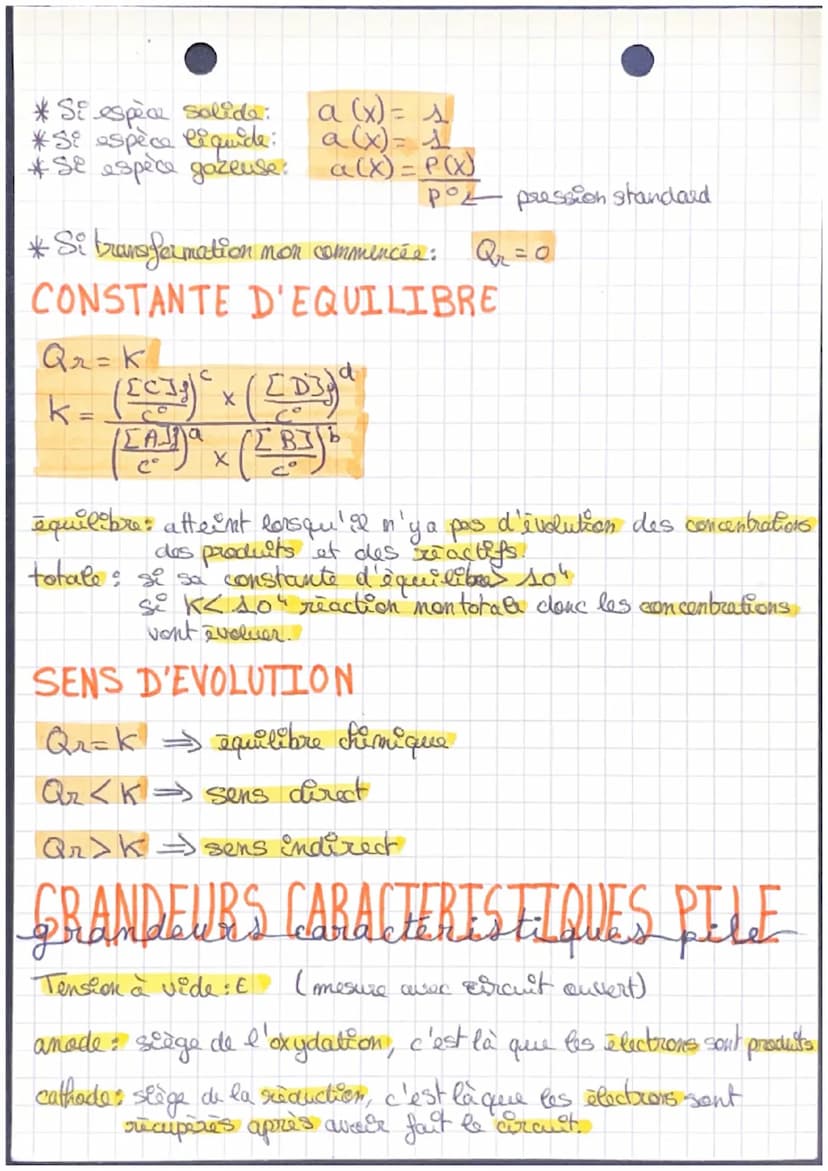 * Si espèce solide: a (x) = 1
* Si espèce liquide: a (x) = 1
* Si espèce gazeuse: a (x) = P(x)
P° ← pression standard
* Si transformation non commencée: Qr = 0
CONSTANTE D'EQUILIBRE
Qr = K
K = ([C]f/c°)^c × ([D]f/c°)^d
([A]f/c°)^a × ([B]/c°)^b
équilibre: atteint lorsqu'il n'y a pas d'évolution des concentrations
des produits et des réactifs.
totale: si sa constante d'équilibre > 10⁴
si K < 10⁴ réaction non totale donc les concentrations
vont évoluer.
SENS D'EVOLUTION
Qr = K ⇒ équilibre chimique
Qr < K ⇒ sens direct
Qr > K ⇒ sens indirect
GRANDEURS CARACTERISTIQUES PILE
grandeurs caractéristiques pile
Tension à vide: E (mesure avec circuit ouvert)
anode: siège de l'oxydation, c'est là que les électrons sont produits
cathode: siège de la réduction, c'est là que les électrons sont
récupérés après avoir fait le circuit.